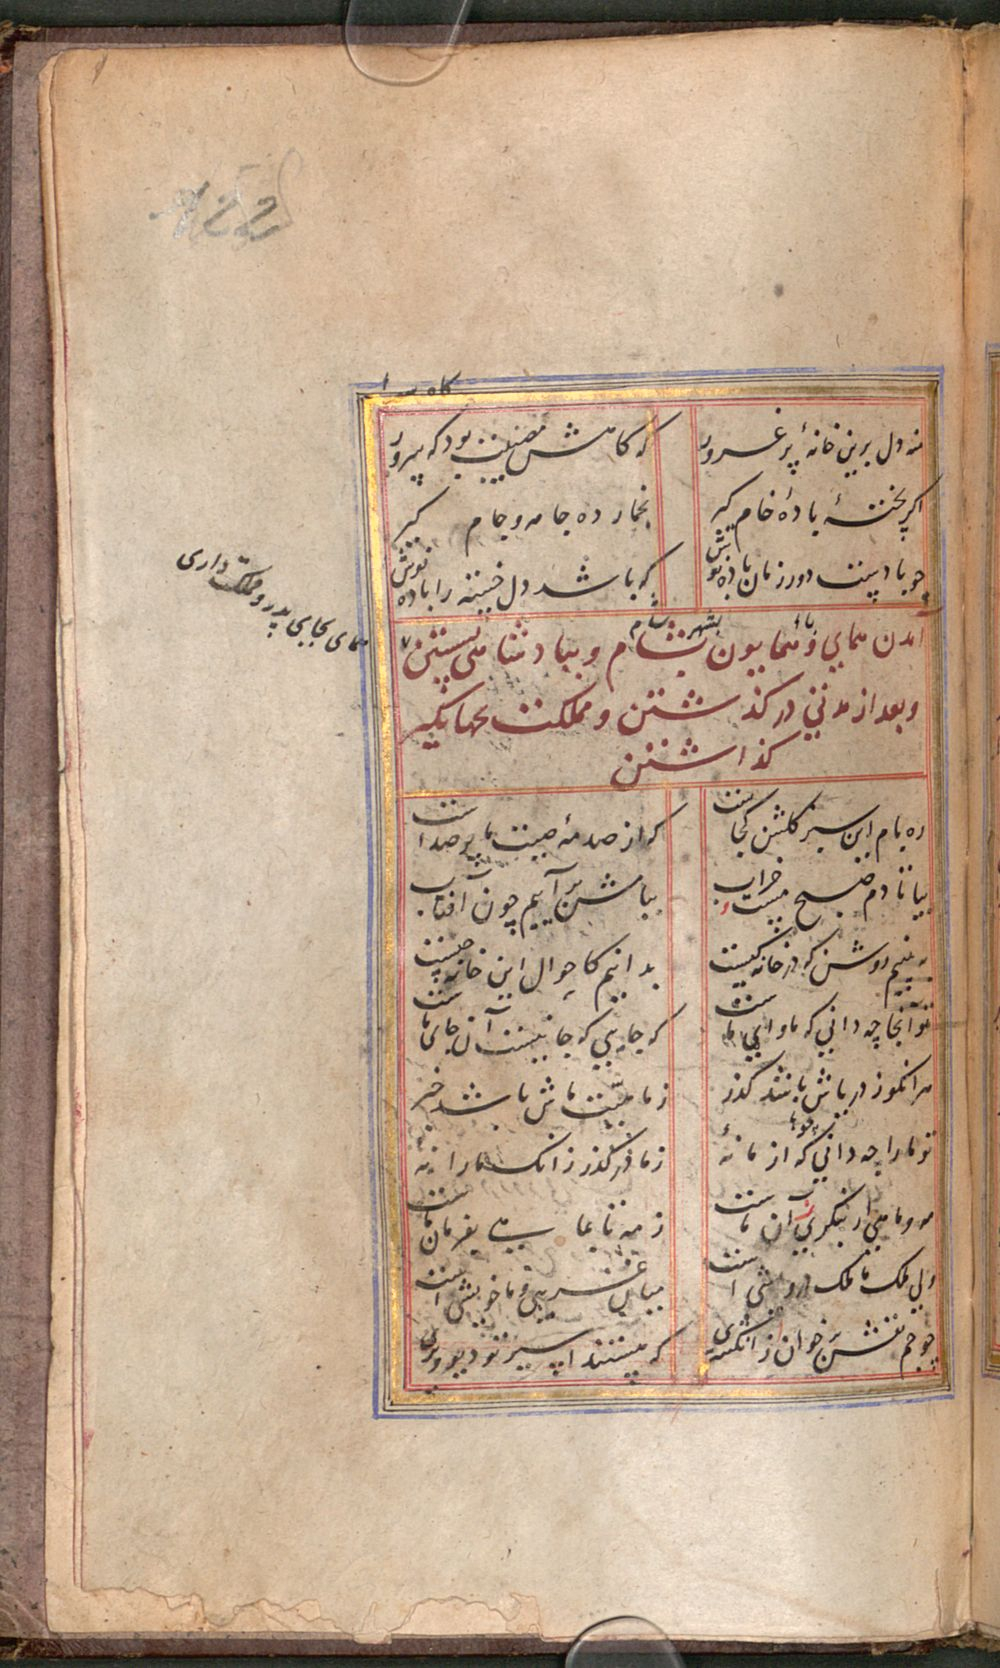 منه دل برین خانهٔ پر غرور که کامش مصیبت بود که سرور
اگر پختهٔ بادهٔ خام گیر بخمار ده جامه و جام گیر
چو بادست دور زمان باده نوش که باشد دل خسته را باده نوش
آمدن همای و همایون بشهر شام و بپادشاهی نشستن
و بعد از مدتی در گذشتن و مملکت بجهانگیر
گذاشتن
همای بجای پدر و مملکت داری
ره بام این سبز گلشن کجاست که از صدمهٔ صیت ما پر صداست
بیا تا دم صبح مست و خراب ببامش بر آییم چون آفتاب
ببینیم روشن که در خانه کیست بدانیم کاحوال این خانه چیست
تو آنجا چه دانی که ماوای ماست که جایی که جا نیست آن جای ماست
هر انکو ز دریاش باشد گذر ز ماهیت ماش باشد خبر
تو ما را چه دانی که از ما نهٔ ز ما در گذر زانک ما را نهٔ
مه و ماهی ار بنگری آن ماست ز مه تا بماهی بفرمان ماست
ولی ملک ما ملک درویشی است میان غریبی و ما خویشی است
چو جم نقش بر خوان ز انگشتری که هستند اسیر تو دیو و پری